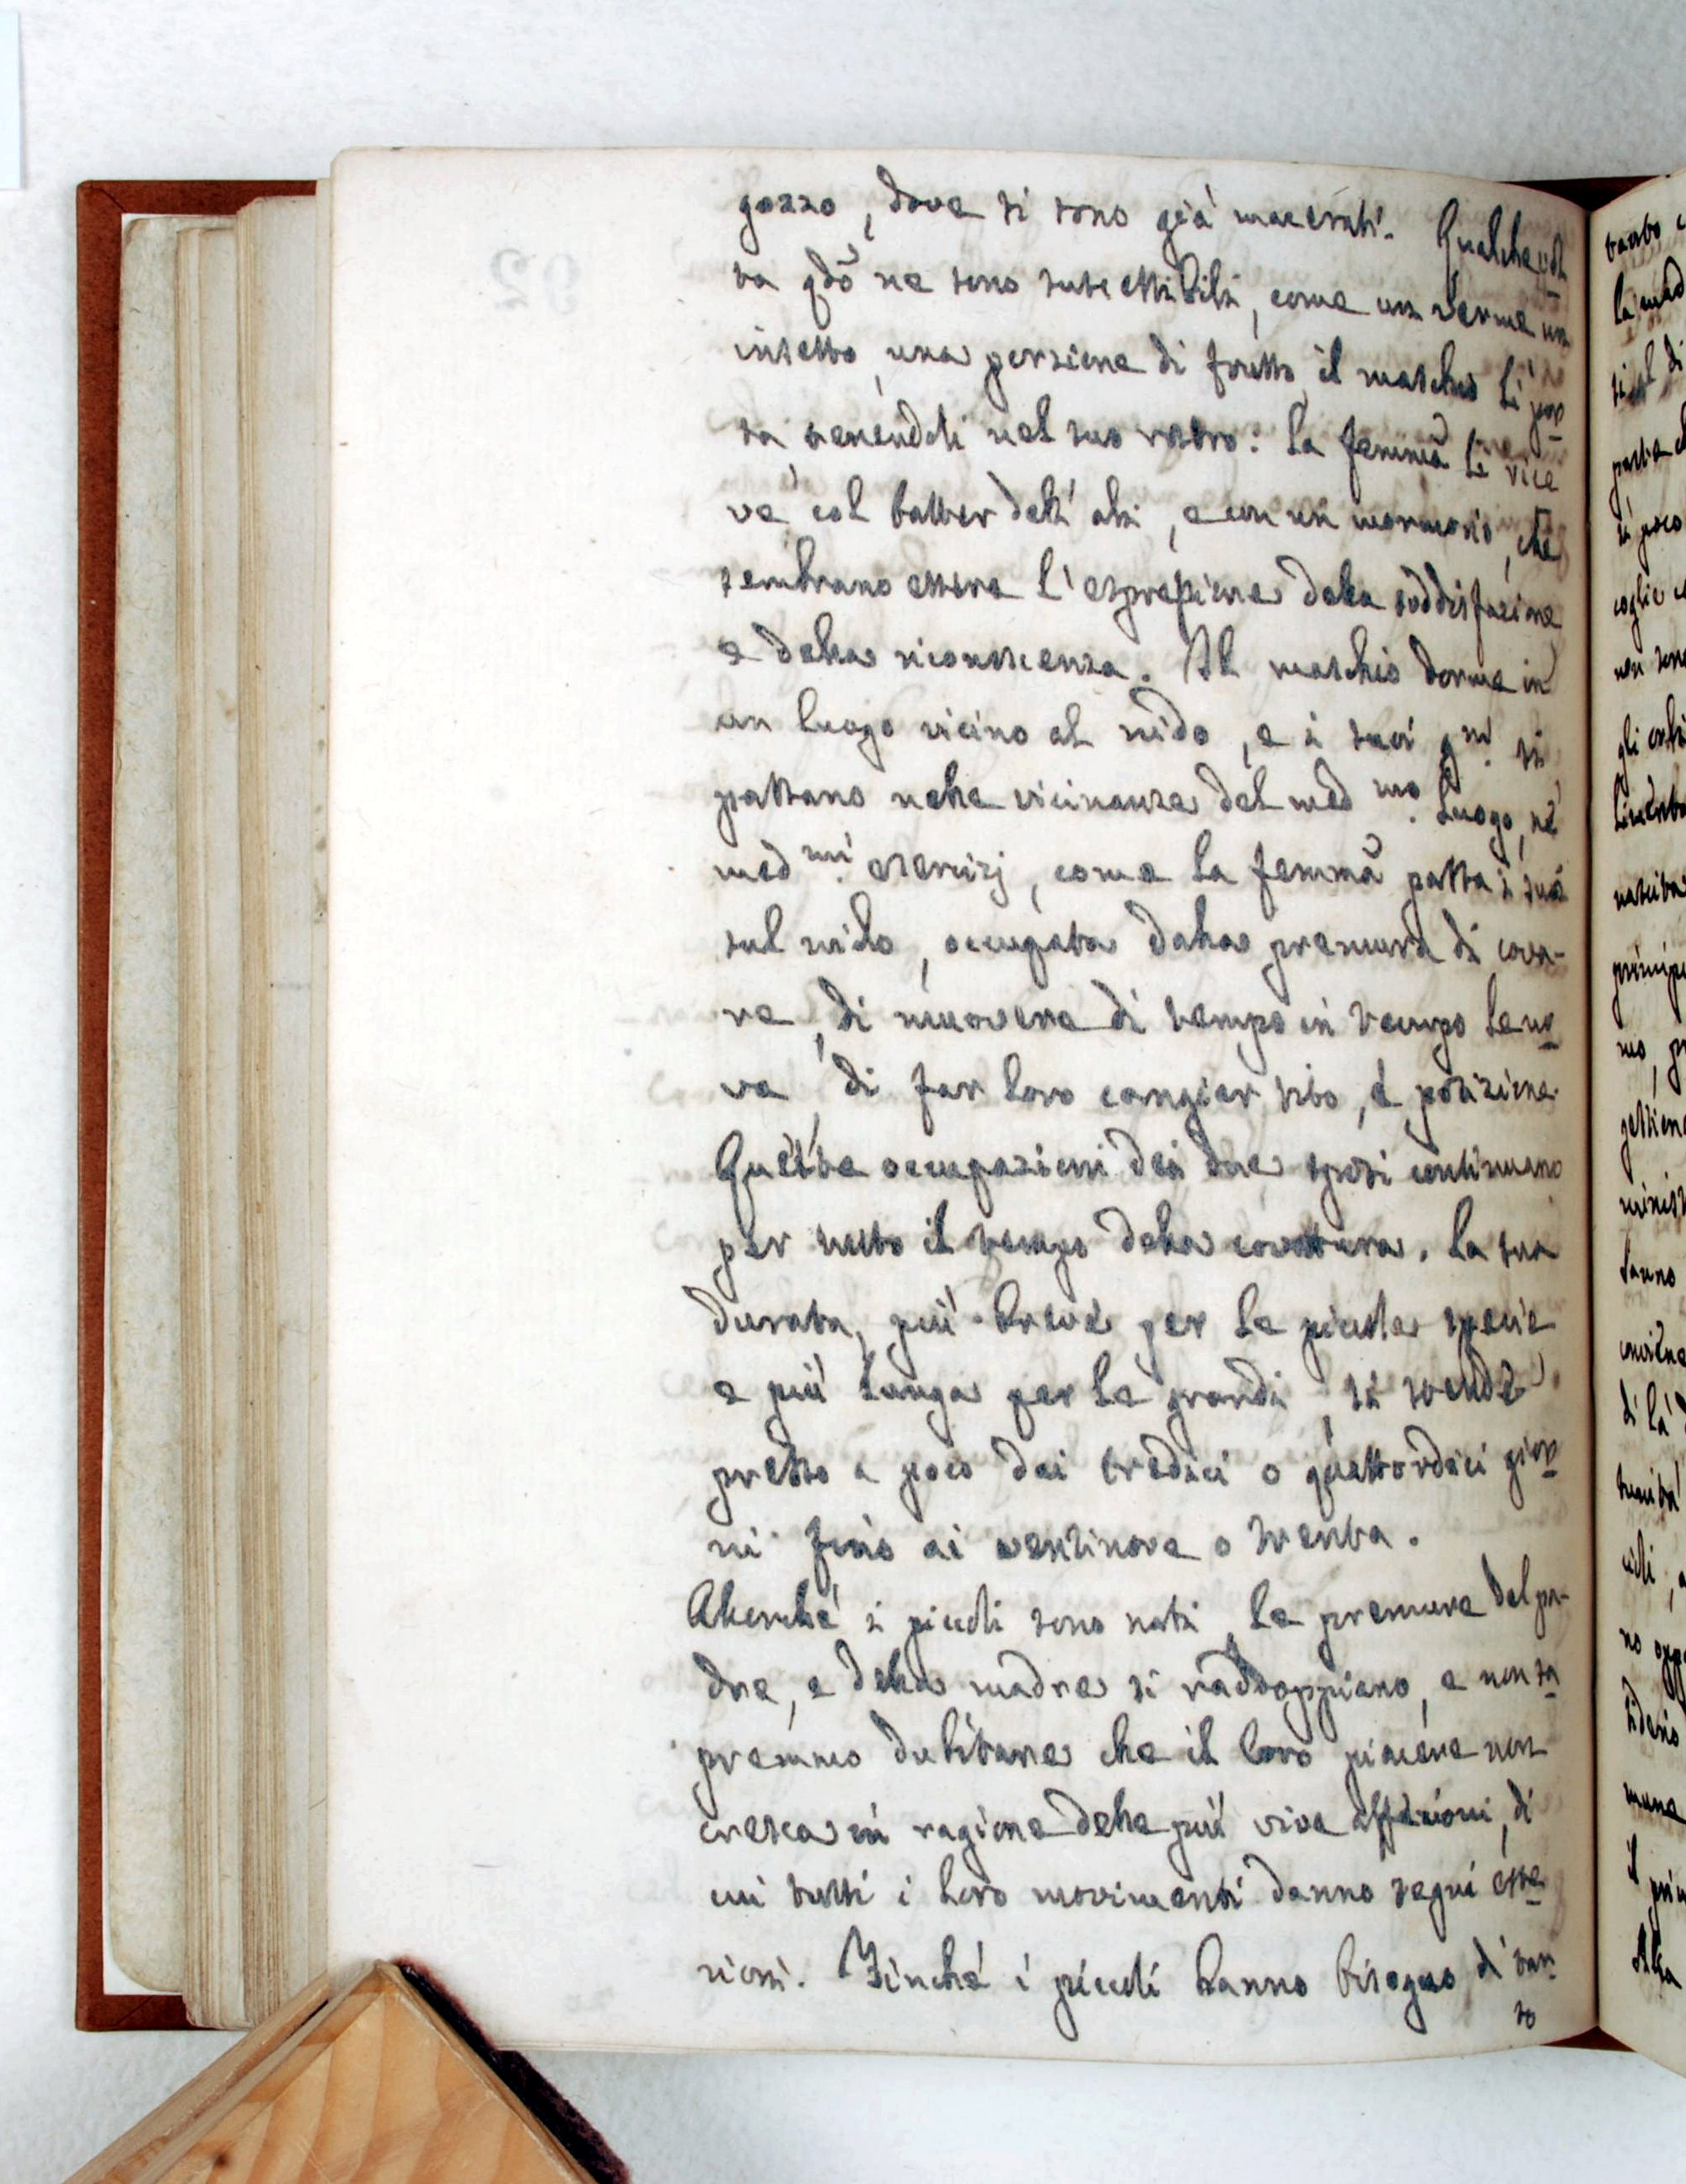 gozzo, dove si sono già macerati. Qualche vol
ta qdõ ne sono suscettibili, come un verme un
insetto, una porzione di frutto il maschio li por
ta tenendoli nel suo rostro: la femmã li rice
ve col batter dell'ali, e con un mormorio, che
sembrano essere l'espressione della soddisfazione
e della riconoscenza. Il maschio dorme in
un luogo vicino al nido, e i suoi gni. si
passano nelle vicinanze del medmo. luogo, né
medmi. esercizj, come la femmã passa i suoi
sul nido, occupata dalla premura di cova-
re, di muovere di tempo in tempo le uo
va, di far loro cangiar sito, é posizione.
Queste occupazioni dei due sposi continuano
per tutto il tempo della covatura. La sua
durata, più breve per le piccole specie
e più lunga per le grandi, si stende
presso a poco dai tredici o quattordici gior
ni fino ai ventinove o trenta.
Allorché i piccoli sono nati, le premure del pa-
dre, e della madre si raddoppiano, e non sa
premmo dubitare che il loro piacere non
cresca in ragione delle più vive affezioni, di
cui tutti i loro movimenti danno segni este
riori. Finché i piccoli hanno bisogno d'tan
to